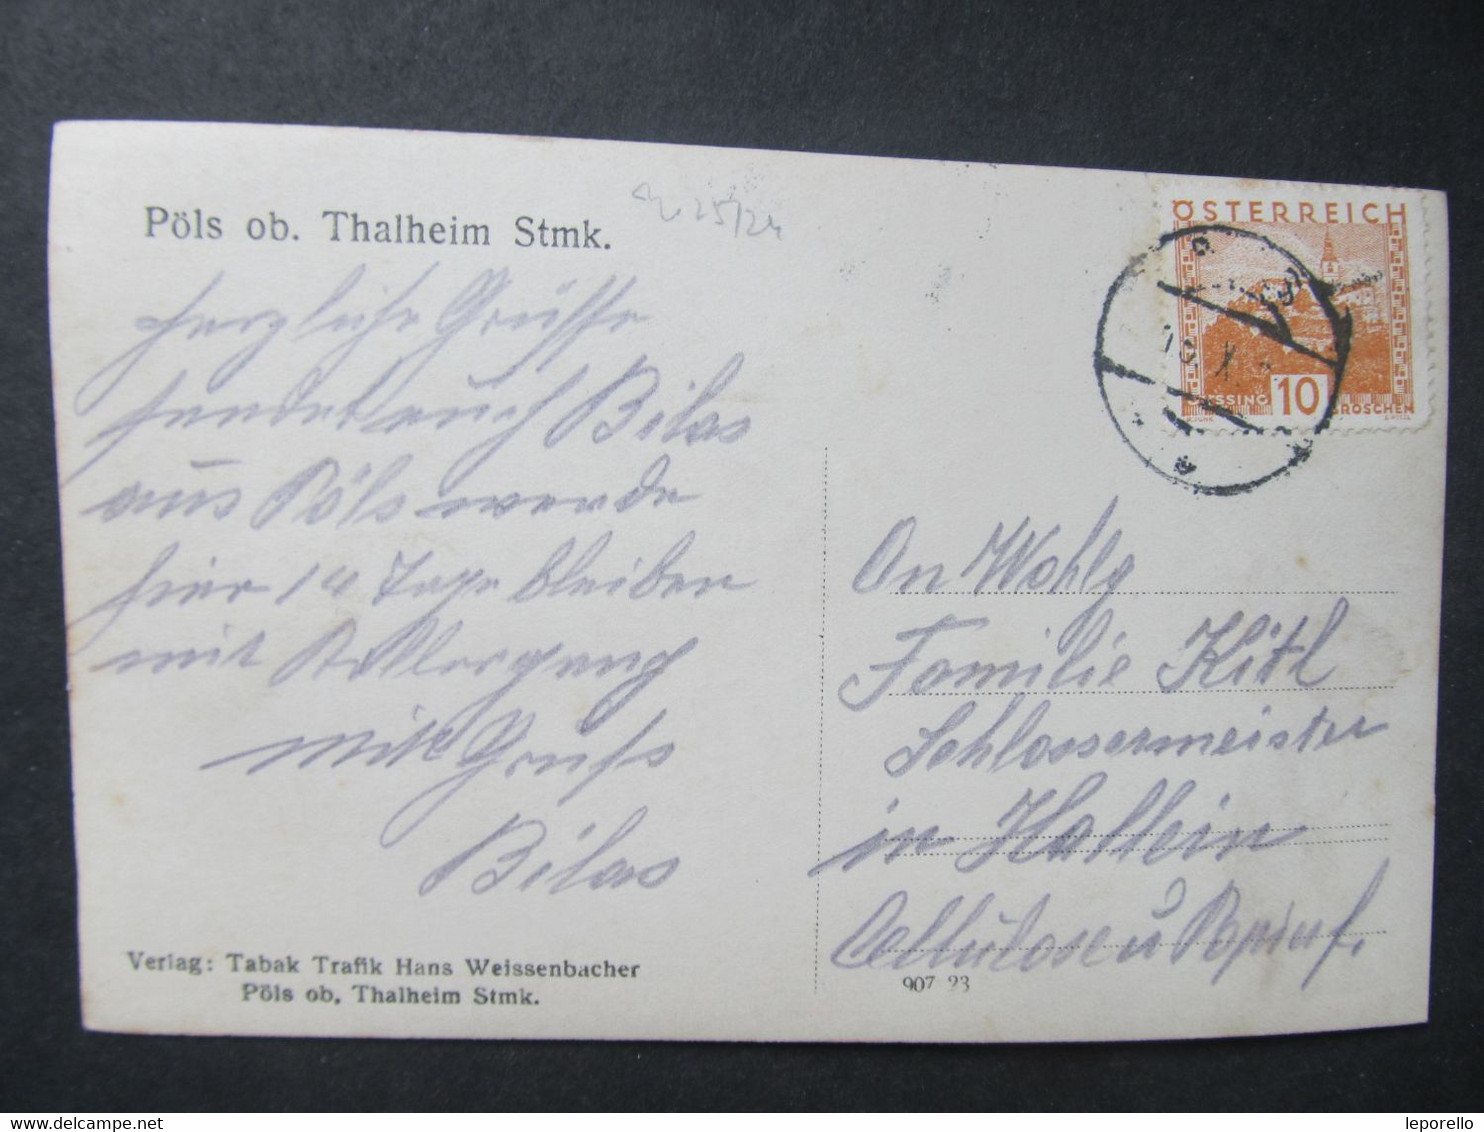 Pöls ob. Thalheim Stmk.
25/24
Herzliche Grüsse
sendet euch Bilas
aus Pöls werde
hier 14 Tage bleiben
mit
Mit Gruss
Bilas
Verlag: Tabak Trafik Hans Weissenbacher
Pöls ob. Thalheim Stmk.
ÖSTERREICH
GÜSSING 10 GROSCHEN
An Wohlg
Familie Kitl
Schlossermeister
in Hallein
Cellulose u Papierf.
907 23
leporello